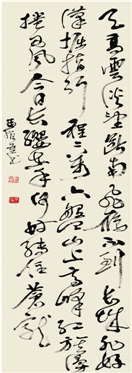 天高雲淡望斷南飛雁不到長城非好
漢屈指行程二萬六盤山上高峰紅旗漫
捲西風今日長纓在手何時縛住蒼龍